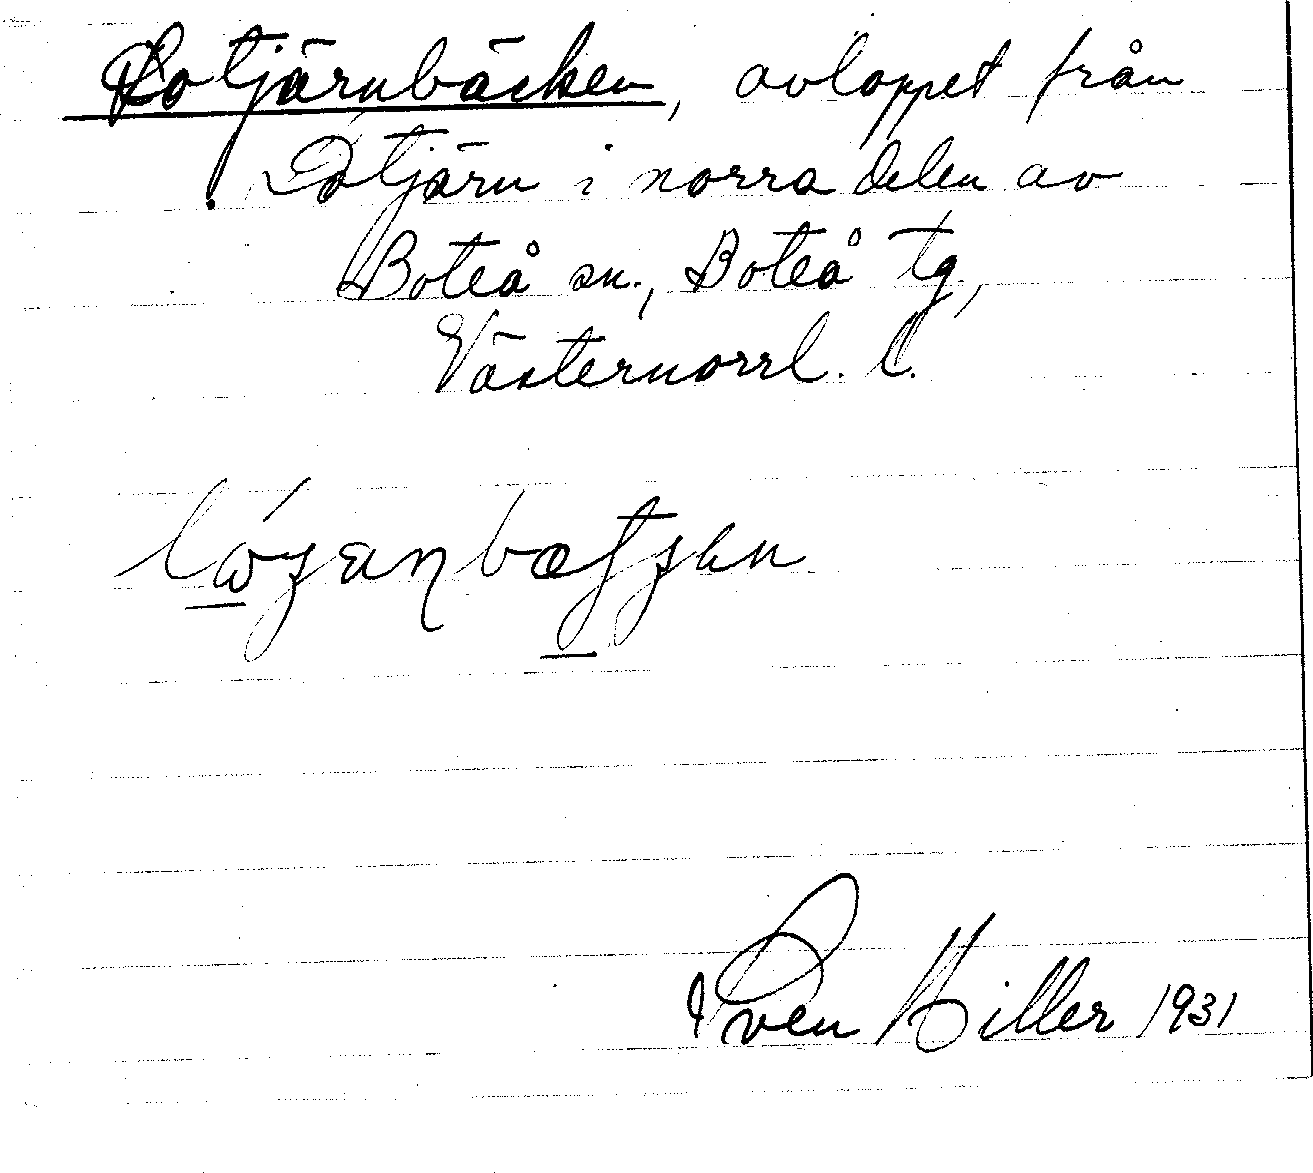 Lotjärnbäcken, avloppet från
Lotjärn i norra delen av
Boteå sn., Boteå tg,
Västernorrl. l.
Sven Hiller 1931